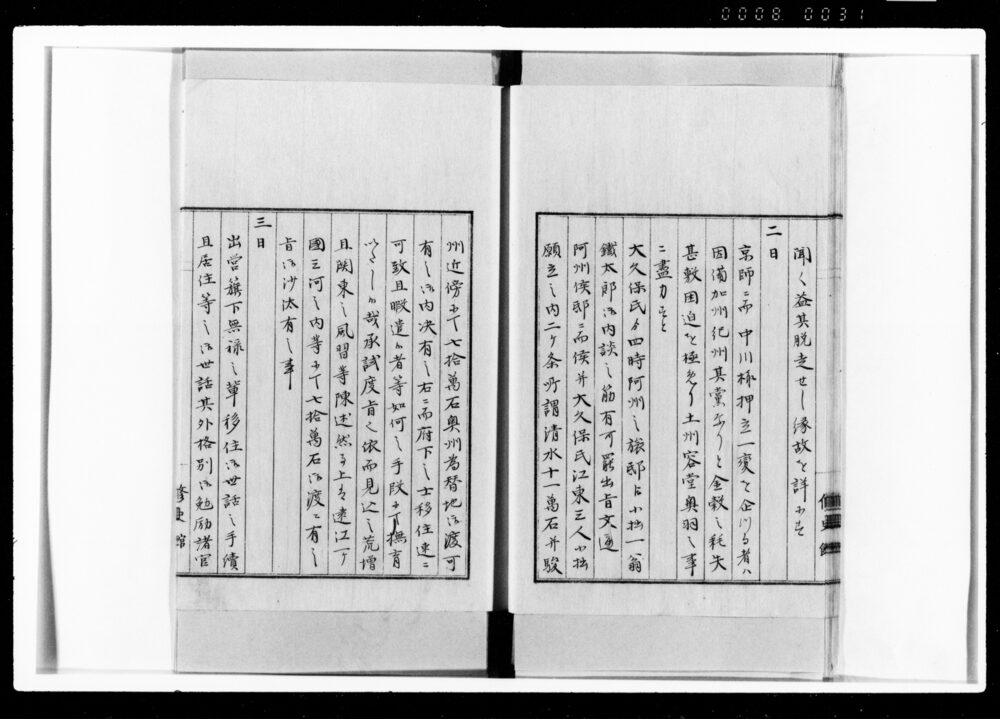 0008 0031
聞く益其脱走せし縁故を詳かにす
二日
京師ニ而中川様押立一変を企つる者ハ
因備加州紀州其黨なりと金穀之耗失
甚敷困迫を極めり土州容堂奥羽之事
ニ盡力すと
大久保氏ゟ四時阿州之旅邸江小拙一翁
鐵太郎御内談之筋有可罷出旨文通
阿州侯邸ニ而侯并大久保氏江東三人小拙
願立之内二ケ条所謂清水十一萬石并駿
州近傍ニ而七拾萬石奥州為替地御渡可
有之御内决有之右ニ而府下之士移住速ニ
可致且暇遣候者等如何之手段ニ而撫育
いたし候哉承試度旨之依而見込之荒増
且関東之風習等陳述然る上は遠江一ケ
國三河之内等ニ而七拾萬石御渡ニ有之
旨御沙汰有之事
三日
出営旗下無禄之輩移住御世話之手續
且居住等之御世話其外格別御勉励諸官
修史館